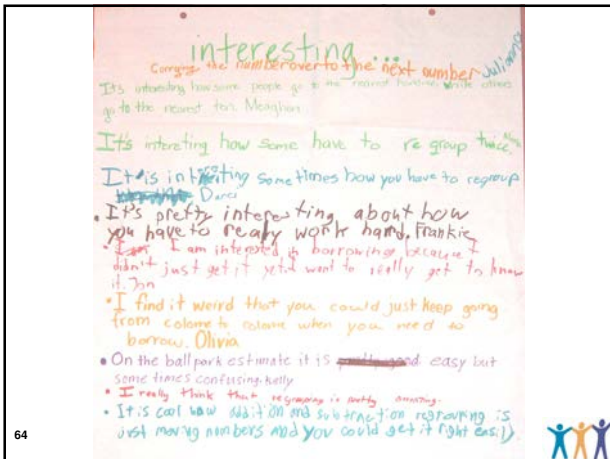 interesting...
Carrying the number over to the next number Julianna
It's interesting how some people go to the nearest hundred while others
go to the nearest ten. Meaghan
It's intereting how some have to re group twice,
It is interesting some times how you have to regroup
Darci
• It's pretty interesting about how
you have to really work hard, Frankie
• I am interested in borrowing because I
didn't just get it yet. I want to really get to know
it. Jon
• I find it weird that you could just keep going
from colome to colome when you need to
borrow. Olivia
• On the ball park estimate it is easy but
some times confusing. Kelly
• I really think that regrouping is pretty amazing.
• It is cool how addition and subtraction regrouping is
just moving numbers and you could get it right easily.
64